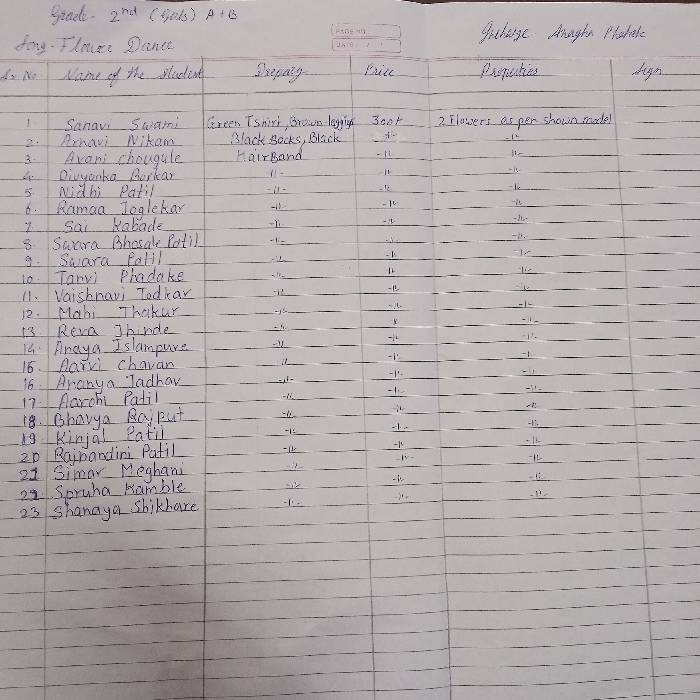 Grade - 2nd (Girls) A+B
Incharge Anagha Phatak
PAGE NO.
DATE: / /
Song - Flower Dance
Sr. No Name of the student Drepary Price Properties Sign
1 Sanavi Swami Green Tshirt, Brown leggings 300/- 2 Flowers as per shown model
2. Arnavi Nikam Black Socks, Black -11- -11-
3. Avani chougule HairBand -11- -11-
4. Divyanka Borkar -11- -11- -11-
5 Nidhi Patil -11- -11- -11-
6. Ramaa Joglekar -11- -11- -11-
7. Sai Kabade -11- -11- -11-
8. Swara Bhosale Patil -11- -11- -11-
9. Swara Patil -11- -11- -11-
10. Tanvi Phadake -11- -11- -11-
11. Vaishnavi Todkar -11- -11- -11-
12. Mahi Thakur -11- -11- -11-
13 Reva Jhinde -11- -11- -11-
14. Anaya Islampure -11- -11- -11-
15. Aarvi Chavan -11- -11- -11-
16 Ananya Jadhav -11- -11- -11-
17. Aarohi Patil -11- -11- -11-
18. Bhavya Rajput -11- -11- -11-
19 Kinjal Patil -11- -11- -11-
20 Rajnandini Patil -11- -11- -11-
21 Simar Meghani -11- -11- -11-
22. Spruha Kamble -11- -11- -11-
23 Shanaya Shikhare -11- -11- -11-